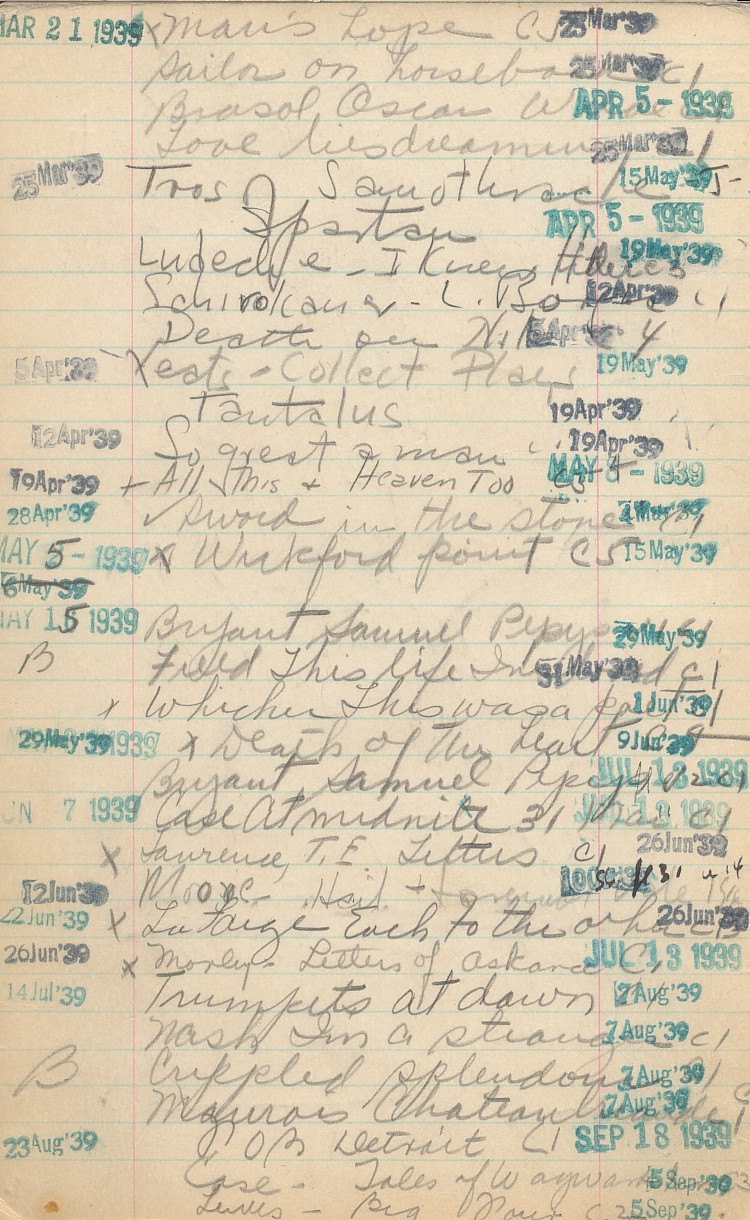 MAR 21 1939 x Man's Hope C5 25 Mar'39
Sailor on horseback C1 25 Mar'39
Brasol Oscar Wilde C1 APR 5- 1939
Love lies dreaming C1 25 Mar'39
25 Mar'39 Tros of Samothrace 15 May'39 J-
Spartan APR 5- 1939
Ludecke - I Knew Hitler C3 19 May'39
- L. 12 Apr'39
Death on Nile 5 Apr'39 4
5 Apr'39 Yeats - Collect Plays 19 May'39
Tantalus 19 Apr'39
12 Apr'39 So great a man " 19 Apr'39
19 Apr'39 + All This + Heaven Too C5-4 MAY 8- 1939
28 Apr'39 ✓ Sword in the stone C1
MAY 5- 1939 x Wickford point C5 15 May'39
6 May'39
MAY 15 1939 Bryant Samuel Pepys C1 29 May'39
B Field This life I C1 31 May'39
x Whicher This was a poet C1 1 Jun'39
29 May'39 1939 x Death of the heart 9 Jun'39
Bryant, Samuel Pepys C1 JUL 13 1939
JUN 7 1939 Case At midnite 31 Mar C1 1939
x Lawrence, T.E. Letters C1 26 Jun'39
12 Jun'39 Moore - Hail +
22 Jun'39 x La Farge Each to the other C 26 Jun'39
26 Jun'39 x Morley - Letters of askance C1 JUL 13 1939
14 Jul'39 Trumpets at dawn C1 7 Aug'39
Nash I'm a stranger C1 7 Aug'39
B Crippled splendour C1 7 Aug'39
Maurois Chateaubriande C1 7 Aug'39
23 Aug'39 JOB Detroit C1 SEP 18 1939
Case - Tales of Wayward C3 5 Sep'39
- Big C2 5 Sep'39